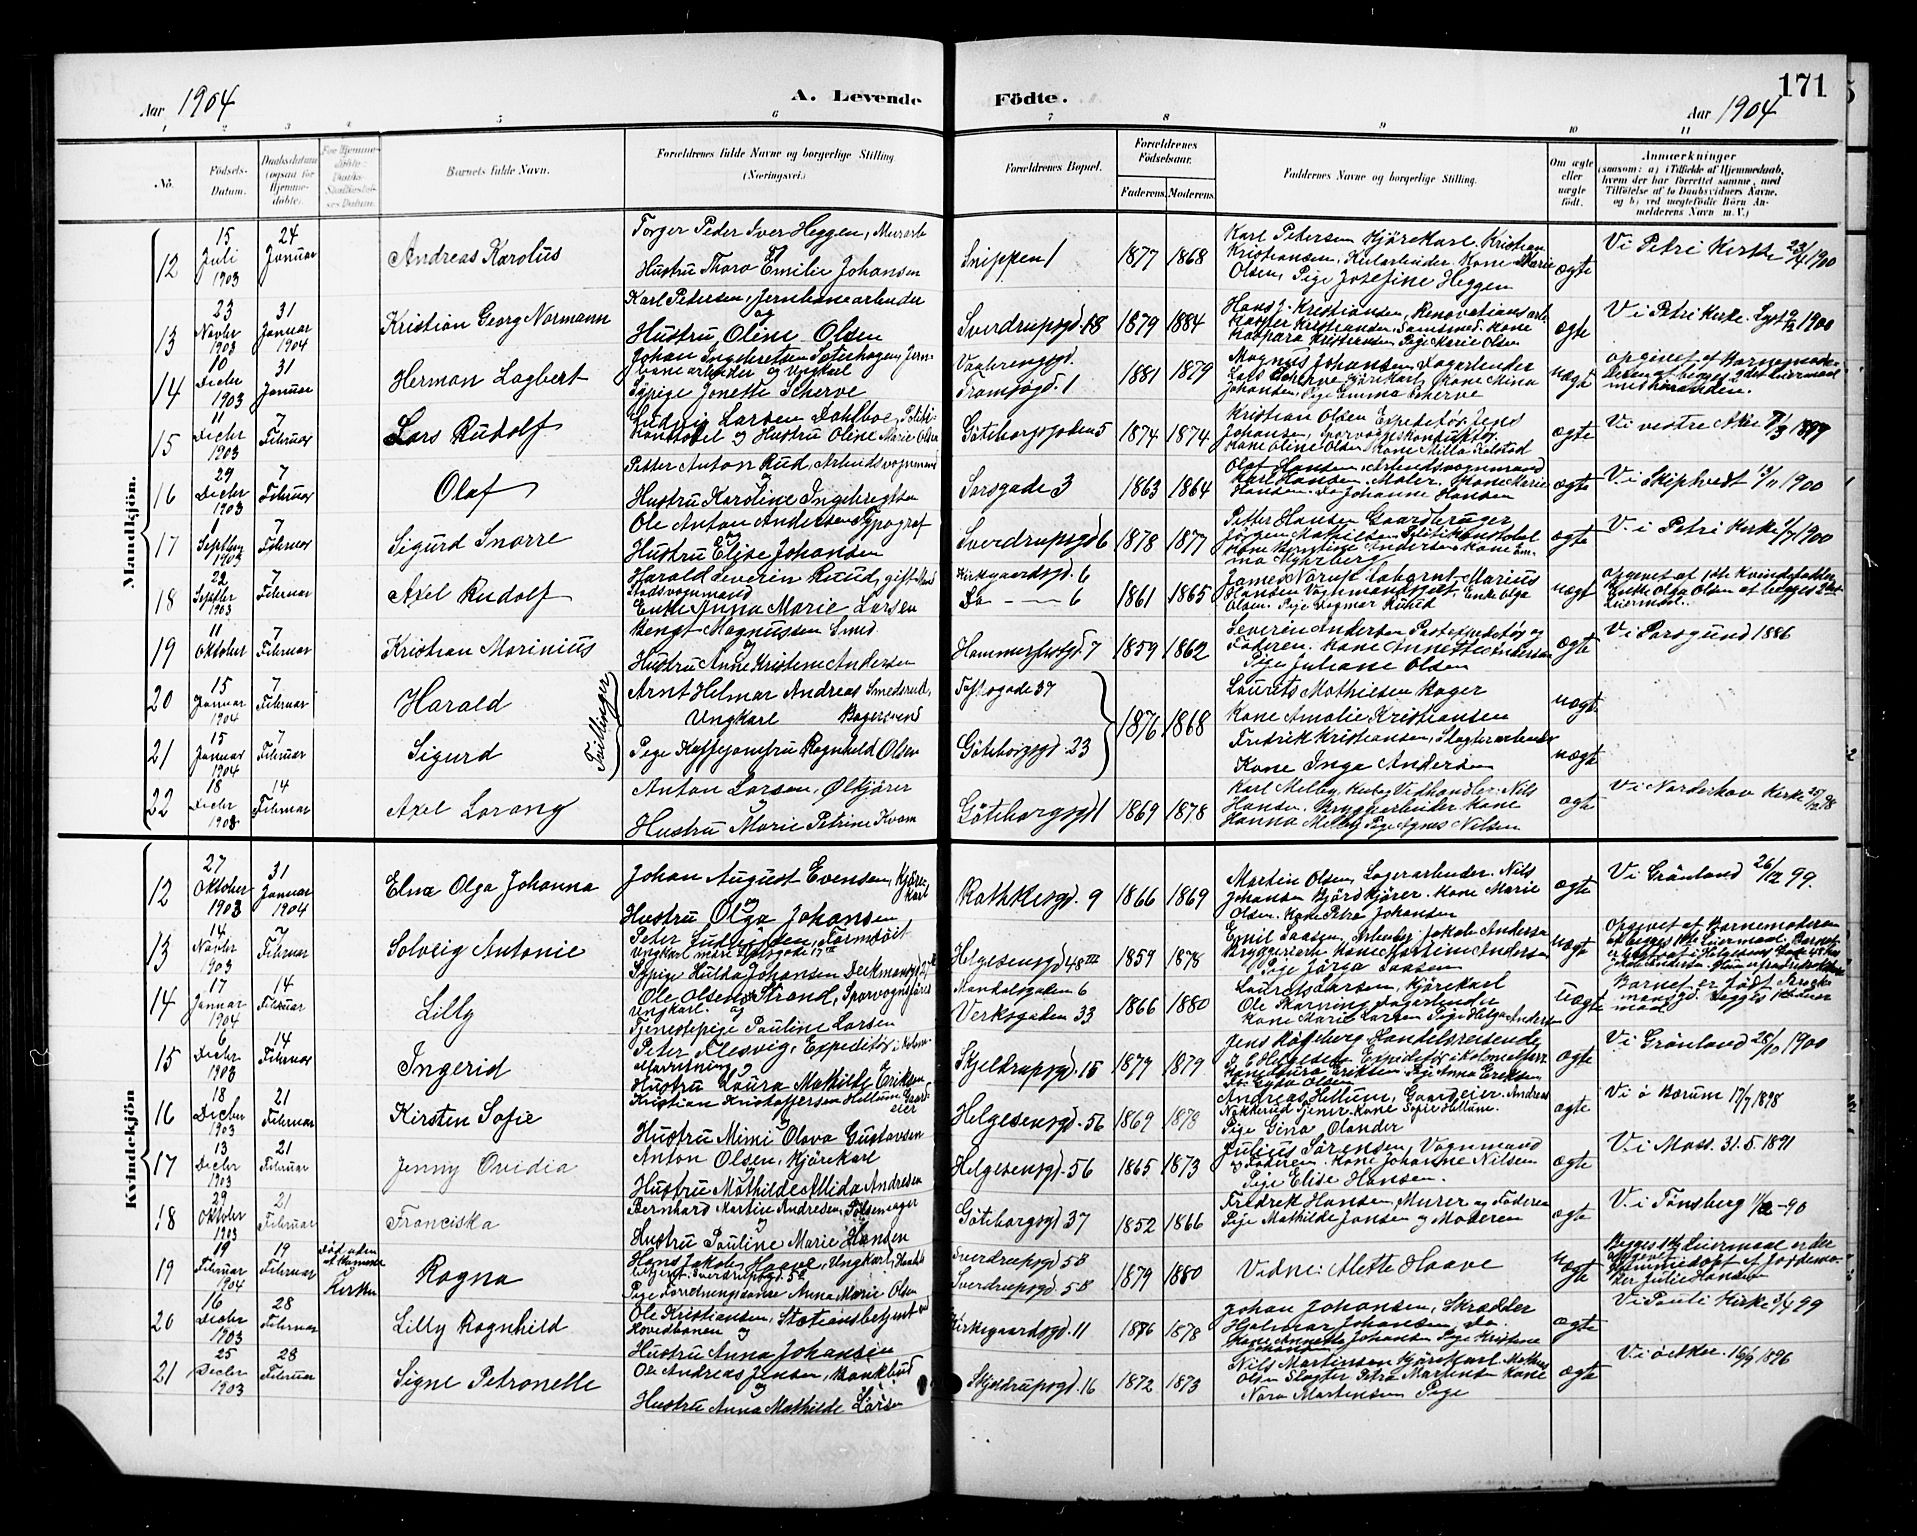 171
Aar 1904
A. Levende Födte.
Aar 1904
1 2 3 4 5 6 7 8 9 10 11
No.
Födsels-Datum.
Daabsdatum (ogsaa for Hjemme-döbte).
Barnets fulde Navn.
Forældrenes fulde Navne og borgerlige Stilling (Næringsvei.)
Forældrenes Bopæl.
Forældrenes Födselsaar.
Faderens. Moderens.
Faddernes Navne og borgerlige Stilling.
Om ægte eller uægte födt.
Anmærkninger (saasom: a) i Tilfælde af Hjemmedaab, hvem der har forrettet samme, med Tilföielse af to Daabsvidners Navne, og b) ved uægtefödte Börn Anmelderens Navn m. V.)
Mandkjön.
12
15 Juli 1903
24 Januar
Andreas Karolus
Torger Peder Iver Heggen, Murarb
og
Hustru Thora Emilie Johansen
Snippen 1
1877 1868
Karl Petersen Kjörekarl. Kristian
Kristiansen, Kulearbeider. Kone Marie
Olsen, Pige Josefine Heggen
ægte
Vi Petri Kirke 23/4 1900
13
23 Novbr 1903
31 Januar 1904
Kristian Georg Normann
Karl Petersen, Jernbanearbeider
og
Hustru Oline Olsen
Sverdrupsgd. 18
1879 1884
Hans J. Kristiansen, Renovationsarb
Kaspara Kristiansen Pige Marie Olsen
ægte
Vi Petri Kirke. 1900
14
10 Decbr 1903
31 Januar
Herman Lagbert
Johan Ingebretsen Sæterhagen, Jern-
banearbeider og Ungkarl
Sypige Jonette Scherve
Tromsögd. 1
1881 1879
Magnus Johansen Lagarbeider
Lars Scherve Kjörekarl Kone Mina
Johansen, Pige Emma Scherve
uægte
opgivet af Barnemode-
15
11 Decbr 1903
7 Februar
Lars Rudolf
Ludvig Larsen Dahlboe, Politi-
konstabel og Hustru Oline Marie Olsen
Göteborggaden 5
1874 1874
Kristian Olsen Expeditör, Jens
Johansen, Sporvogns Konduktör.
Kone Oline Olsen Kone Milla Kolstad
ægte
Vi vestre Aker 7/3 1897
16
29 Decbr 1903
7 Februar
Olaf
Petter Anton Rud, Arbeidsvognmand
Hustru Karoline Ingebregtsen
Sarsgade 3
1863 1864
Olaf Hansen, Arbeidsvognmand
Karl Hansen. Maler. Kone Marie
Hansen. Do Johanne Hansen
ægte
V. i Skiptvedt 13/11 1900
17
1 Septbr 1903
7 Februar
Sigurd Snorre
Ole Anton Andersen Typograf
og
Hustru Elise Johansen
Sverdrupsgd 6
1878 1877
Petter Hansen Gaardbruger
Jörgen Mathisen Politikonstabel
ægte
V. i Petri Kirke 1/7 1900
18
22 Septbr 1903
7 Februar
Axel Rudolf
Harald Severin Ruud, gift
Stadsvognmand
Enke Anna Marie Larsen
Kirkegaardsgd. 6
Do — 6
1861 1865
Hansen Vognmandsgut. Enke Olga
Olsen. Pige Dagmar Ruud
uægt
opgivet af
Enke Olga Olsen at begges
Leiermaal.
19
11 Oktober
7 Februar
Kristian Marinius
Bengt Magnussen Smed.
og
Hustru Anne Kristine Andersen
Hammerfestgd. 7
1859 1862
Severin Andersen Postexpeditör og
Faderen. Kone Annette Andersen
Pige Juliane Olsen
ægte
V. i Porsgrund 1886
20
15 Januar 1904
7 Februar
Harald
Tvillinger
Arnt Helmar Andreas Smederud,
Ungkarl Bagersvend
Toftesgade 37
1876 1868
Laurits Mathiesen Bager
Kone Amalie Kristiansen
uægt.
21
15 Januar 1904
7 Februar
Sigurd
Pige Kaffejomfru Ragnhild Olsen
Göteborgsgd. 23
Fredrik Kristiansen, Slagterarbeider
Kone Inga Andersen
uægte
22
18 Decbr 1903
14 Februar
Axel Lorang
Anton Larsen, Ölkjörer
og
Hustru Marie Petrine Kvam
Göteborgsgd 1
1869 1878
Karl Melby, Vedhandler. Nils
Hansen. Bryggerarbeider Kone
Hanna Melby Pige Agnes Nilsen
ægte
V. i Norderhov Kirke
Kvindekjön
12
27 Oktober 1903
31 Januar 1904
Elna Olga Johanna
Johan August Evensen, Kjöre-
karl
og
Hustru Olga Johansen
Rathkesgd. 9
1866 1869
Martin Olsen, Lagerarbeider. Nils
Johansen Kjörer. Kone Marie
Olsen. Kone Petra Johansen
ægte
V. i Grönland 26/12 99.
13
14 Novbr 903
7 Februar
Solveig Antonie
Peter
Ungkarl
Sypige Hulda Johansen
Helgesensgd 48 III
1859 1878
Emil Saasen, Jakob Andersen
Bryggeriarb. Kone Andersen
Pige Saasen
uægt
opgivet af Barnemoderen
14
17 Januar 1904
14 Februar
Lilly
Ole Olsen Strand, Sporvogns
Ungkarl. og
Tjenestepige Pauline Larsen
Mandalsgaden 6
Verksgaden 33
1866 1880
Laurits Larsen, Kjörekarl
Ole Skarning Lagarbeider
Kone Marie Larsen Pige Helga Andersen
Uægt
Barnet er födt
15
6 Decbr 1903
14 Februar
Ingerid
Peter Flesvig, Expeditör i
Hustru Laura Mathilde Eriksen
Skjeldrupsgd. 15
1877 1879
Jens Handelsreisende
Do. Gyda Olsen
ægte
V. i Grönland 28/10 1900
16
18 Decbr 1903
21 Februar
Kirsten Sofie
Kristian Kristoffersen Hellum Gaard-
eier
Hustru Mimi Olava Gustavsen
Helgesensgd. 56
1869 1879
Andreas Hellum, Gaardeier. Andreas
Kone Sofie Hellum.
Pige Gina Olander
ægte
V. i ö Bærum 17/7 1898
17
13 Decbr 1903
21 Februar
Jenny Ovidia
Anton Olsen, Kjörekarl
Hustru Mathilde Alida Andresen
Helgesensgd. 56
1865 1873
Julius Sörensen, Vognmand
og Faderen. Kone Johanne Nilsen
Pige Elise Hansen.
ægte
V. i Moss. 31.5.1891
18
29 Oktober 1903
21 Februar
Franciska
Bernhard Martin Andresen, Pölsemager
og
Hustru Pauline Marie Hansen
Göteborgsgd 37
1852 1866
Fredrik Hansen, Murer og Faderen
Pige Mathilde Jansen og Moderen
ægte
V. i Tönsberg -90
19
19 Februar 1904
19 Februar
Kirken
Ragna
Hans Jakob Haave, Ungkarl,
betjent. Sverdrupsgd. 52
Pige Anna Marie Olsen
Sverdrupsgd 58
Sverdrupsgd. 58
1879 1880
Vidne: Mette Haave
uægte
Begges Leiermaal er der
opgivet
Hjemmedöpt af Jordemo-
der Julie Hansen
20
16 Decbr 1903
28 Februar
Lilly Ragnhild
Ole Kristiansen, Stationsbetjent ved
Hovedbanen og
Hustru Anna Johansen
Kirkegaardsgd. 11
1876 1878
Johan Johansen, Skrædder
Hjalmar Johansen, Do.
Kone Annette Johansen Pige Kristine
Johansen
ægte
V. i Pauli Kirke 3/4 99
21
25 Decbr 1903
28 Februar
Signe Petronelle
Ole Andreas Jensen, Bankbud
og
Hustru Anna Mathilde Larsen
Skjeldrupsgd. 16
1872 1873
Nils Martinsen Kjörekarl. Mathias
Olsen Slagter Petra Martinsen Kone
Nora Martinsen Pige
ægte
V. i ö Aker. 16/9 1896